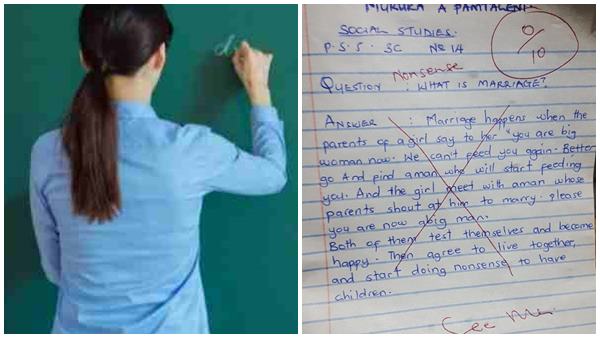 d
MUKUKA A PAMTALEN
SOCIAL STUDIES.
P.S.S. SC No 14
0/10
Nonsense
QUESTION : WHAT IS MARRIAGE?
ANSWER : Marriage happens when the
parents of a girl say to her "you are big
woman now. We can't feed you again. Better
go And find aman who will start feeding
you. And the girl meet with aman whose
parents shout at him to marry. Please
you are now abig man.
Both of them test themselves and become
happy. Then agree to live together,
and start doing nonsense to have
children.
See Me.